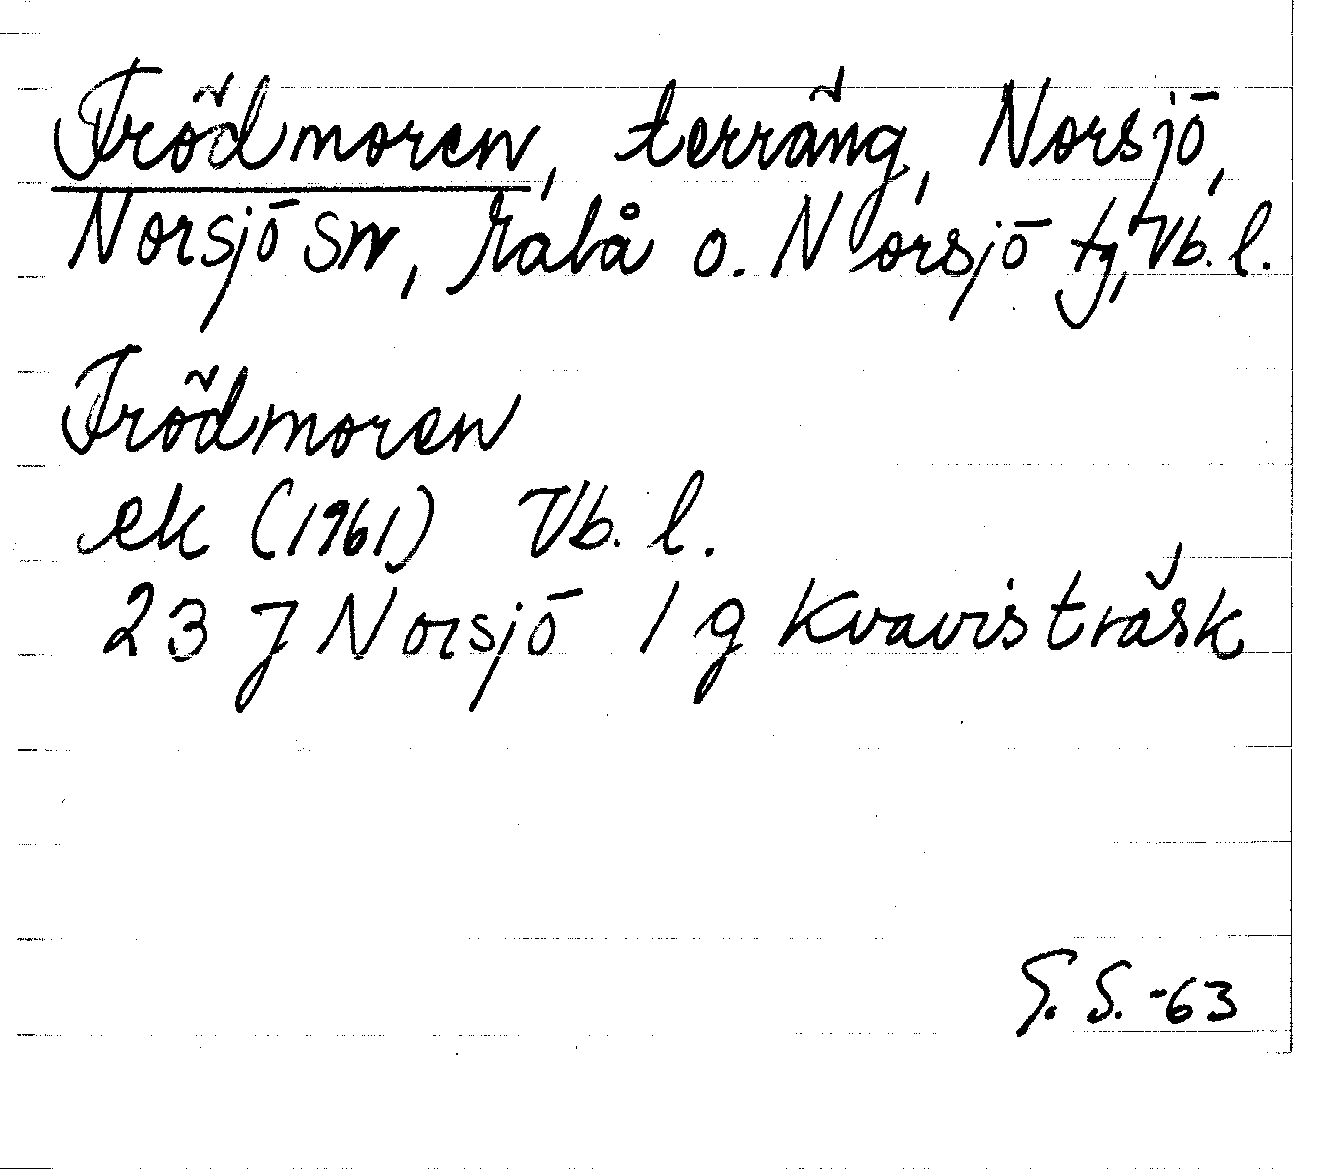 Trödmoren, terräng, Norsjö,
Norsjö sn, Malå o. Norsjö tg, Vb. l.
Trödmoren
ek (1961) Vb. l.
23 J Norsjö 1 g Kvavisträsk
G. S. -63